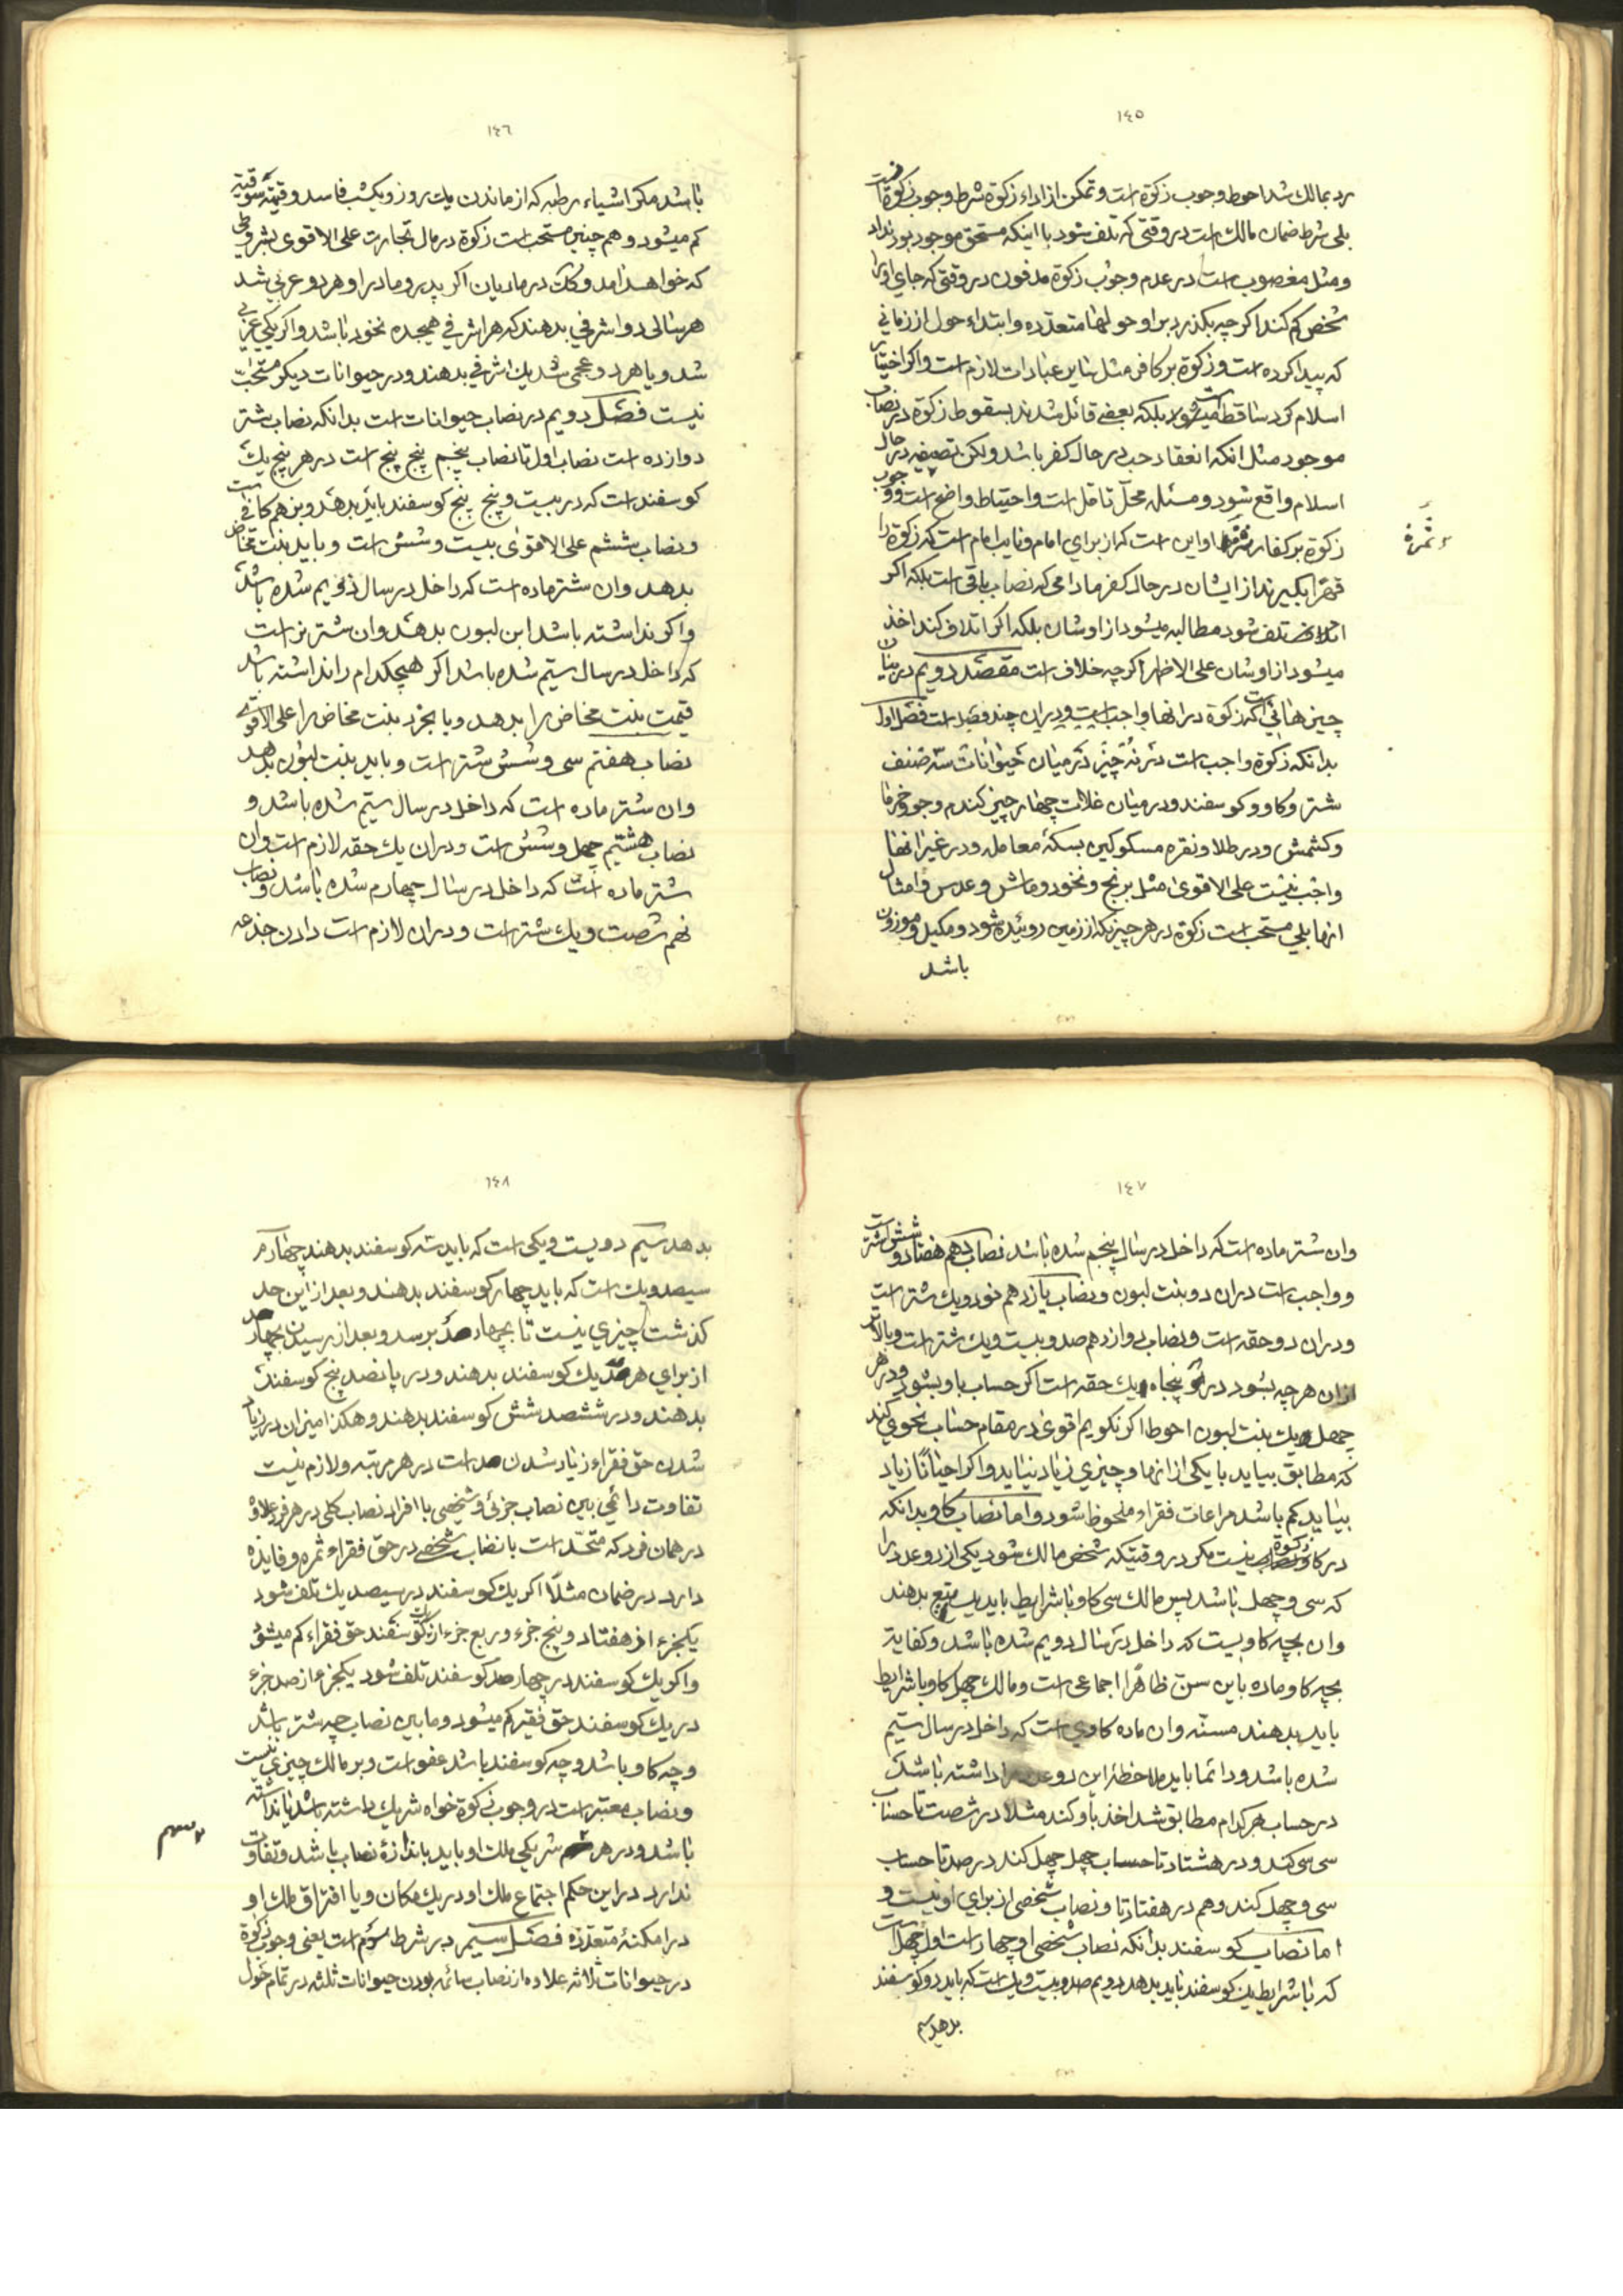 ١٤٥
رد بمالك شد احوط وجوب زكوة است و تمكن از اداء زكوة شرط وجوب زكوة نيست
بلى شرط ضمان مالك است در وقتى كه تلف شود با اينكه مستحق موجود بود نداد
و مثل مغصوب است در عدم وجوب زكوة مدفون در وقتى كه جاى او را
شخص كم كند اكر چه بكذرد بر او حولها متعدّده و ابتداء حول از زمانى
كه پيدا كرده است و زكوة بر كافر مثل ساير عبادات لازم است و اكر اختيار
اسلام كرد ساقط ميشود بلكه بعضى قائل شدند بسقوط زكوة در نصاب
موجود مثل انكه انعقاد حب در حال كفر باشد ولكن تصفيه در حال
اسلام واقع شود و مسئله محلّ تامّل است و احتياط واضح است و وجوب
زكوة بر كفار ثمره او اين است كه از براى امام و نايب امام است كه زكوة را
ثمرة
قهرًا بكيرند از ايشان در حال كفر مادامى كه نصاب باقى است بلكه اكر
تلف شود مطالبه ميشود از اوشان بلكه اكر اتلاف كند اخذ
ميشود از اوشان على الاظهر اكر چه خلاف است مقصد دويم در بيان
چيزهائى است كه زكوة در انها واجب است و در ان چند فصل است فصل اول
بدانكه زكوة واجب است در نه چيز در ميان حيوانات سه صنف
شتر و كاو و كوسفند و در ميان غلات چهار چيز كندم و جو و خرما
و كشمش و در طلا و نقره مسكوكين بسكهٔ معامله و در غير انها
واجب نيست على الاقوى مثل برنج و نخود و ماش و عدس و امثال
انها بلى مستحب است زكوة در هر چيزيكه از زمين روئيده شود و مكيل و موزون
باشد
١٤٦
باشد مكر اشياء رطبه كه از ماندن يك روز و يكشب فاسد و قيمة سوقيّه
كم ميشود و هم چنين مستحب است زكوة در مال تجارت على الاقوى بشروطى
كه خواهد امد و كك در ماديان اكر پدر و مادر او هر دو عربى شد
هر سالى دو اشرفى بدهند كه هر اشرفى هيجده نخود باشد و اكر يكى عربى
شد و يا هر دو عجمى شد يك اشرفى بدهند و در حيوانات ديكر مستحبّ
نيست فصل دويم در نصاب حيوانات است بدانكه نصاب شتر
دوازده است نصاب اول تا نصاب پنجم پنج پنج است در هر پنج يك
كوسفند است كه در بيست و پنج پنج كوسفند بايد بدهد و بز هم كافى است
و نصاب ششم على الاقوى بيست و شش است و بايد بنت مخاض
بدهد و ان شتر ماده است كه داخل در سال دويم شده باشد
و اكر نداشته باشد ابن لبون بدهد و ان شتر نر است
كه داخل در سال سيّم شده باشد اكر هيچكدام را نداشته باشد
قيمت بنت مخاض را بدهد و يا بخرد بنت مخاض را على الاقوى
نصاب هفتم سى و شش شتر است و بايد بنت لبون بدهد
و ان شتر ماده است كه داخل در سال سيّم شده باشد و
نصاب هشتم چهل و شش است و در ان يك حقه لازم است و ان
شتر ماده است كه داخل در سال چهارم شده باشد و نصاب
نهم شصت و يك شتر است و در ان لازم است دادن جذعه
١٤٧
و ان شتر ماده است كه داخل در سال پنجم شده باشد نصاب دهم هفتاد و شش شتر است
و واجب است در ان دو بنت لبون و نصاب يازدهم نود و يك شتر است
و در ان دو حقه است و نصاب دوازدهم صد و بيست و يك شتر است و بالاتر
از ان هر چه بشود در هر پنجاه يك حقه است اكر حساب باو بشود و در هر
چهل يك بنت لبون احوط اكر نكويم اقوى در مقام حساب نحوى كند
كه مطابق بيايد با يكى از انها و چيزى زياد نيايد و اكر احيانًا زياد
بيايد كم باشد مراعات فقراء ملحوظ شود و اما نصاب كاو بدانكه
در كاو زكوة نيست مكر در وقتيكه شخص مالك شود يكى از دو عدد را
كه سى و چهل باشد پس مالك سى كاو با شرايط بايد يك تبيع بدهند
و ان بچه كاويست كه داخل در سال دويم شده باشد و كفاية
بچه كاو ماده باين سن ظاهرًا اجماعى است و مالك چهل كاو با شرايط
بايد بدهند مسنّه و ان ماده كاوى است كه داخل در سال سيّم
شده باشد و دائما بايد ملاحظهٔ اين دو عدد را داشته باشد
در حساب هر كدام مطابق شد اخذ باو كند مثلا در شصت تا حساب
سى سى كند و در هشتاد تا حساب چهل چهل كند در صد تا حساب
سى و چهل كند و هم در هفتاد تا و نصاب شخصى از براى او نيست و
اما نصاب كوسفند بدانكه نصاب شخصى او چهار است اول چهل است
كه با شرايط يك كوسفند بايد بدهد دويم صد و بيست و يك است كه بايد دو كوسفند
بدهد سيّم
١٤٨
بدهد سيّم دويست و يكى است كه بايد سه كوسفند بدهند چهارم
سيصد و يك است كه بايد چهار كوسفند بدهند و بعد از اين حد
كذشت چيزى نيست تا بچهار صد برسد و بعد از رسيدن بچهار صد
از براى هر صد يك كوسفند بدهند و در پانصد پنج كوسفند
بدهند و در ششصد شش كوسفند بدهند و هكذا ميزان در زياد
شدن حق فقراء زياد شدن صد است در هر مرتبه و لازم نيست
تفاوت دائمى بين نصاب جزئى و شخصى با افراد نصاب كلى در هر فرد علاوه
در همان فرد كه متحد است با نصاب شخصى در حق فقراء ثمره و فايده
دارد در ضمان مثلًا اكر يك كوسفند در سيصد يك تلف شود
يكجزء از هفتاد و پنج جزء و ربع جزء از يك كوسفند حق فقراء كم ميشود
و اكر يك كوسفند در چهار صد كوسفند تلف شود يكجزء از صد جزء
در يك كوسفند حق فقير كم ميشود و ما بين نصاب چه شتر باشد
و چه كاو باشد و چه كوسفند باشد عفو است و بر مالك چيزى نيست
و نصاب معتبر است در وجوب زكوة خواه شريك داشته باشد يا نداشته
باشد و در هر سهم شريكى ملك او بايد باندازهٔ نصاب باشد و تفاوت
سهم
ندارد در اين حكم اجتماع ملك او در يك مكان و يا افتراق ملك او
در امكنهٔ متعدّده فصل سيم در شرط سوم است يعنى وجوب زكوة
در حيوانات ثلاثه علاوه از نصاب سائمه بودن حيوانات ثلثه در تمام حول